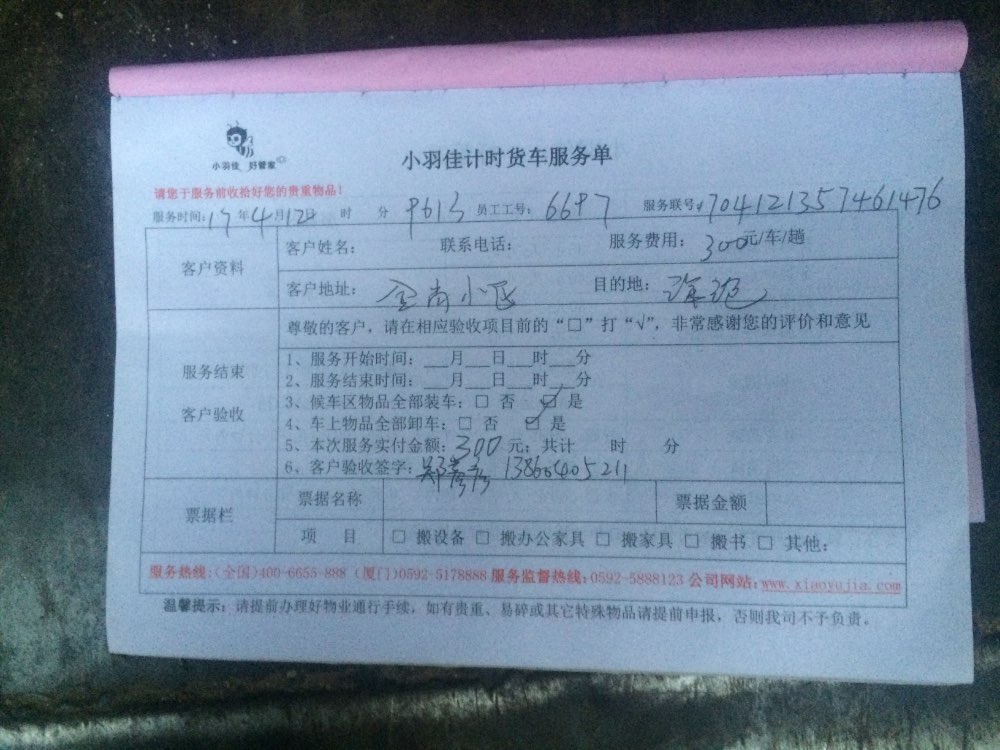 小羽佳 好管家
小羽佳计时货车服务单
请您于服务前收拾好您的贵重物品！
服务时间：17年4月12日 时 分 员工工号：6697 服务联号：704121357461476
客户资料
客户姓名： 联系电话： 服务费用：300元/车/趟
客户地址：金尚小区 目的地：
服务结束
客户验收
尊敬的客户，请在相应验收项目前的“□”打“√”，非常感谢您的评价和意见
1、服务开始时间：___月___日___时___分
2、服务结束时间：___月___日___时___分
3、候车区物品全部装车：□ 否 ☑ 是
4、车上物品全部卸车：□ 否 ☑ 是
5、本次服务实付金额：300元；共计 时 分
6、客户验收签字： 13866405211
票据栏
票据名称 票据金额
项 目 □ 搬设备 □ 搬办公家具 □ 搬家具 □ 搬书 □ 其他：
服务热线：(全国)400-6655-888 (厦门)0592-5178888 服务监督热线：0592-5888123 公司网站：www.xiaoyujia.com
温馨提示：请提前办理好物业通行手续，如有贵重、易碎或其它特殊物品请提前申报，否则我司不予负责。